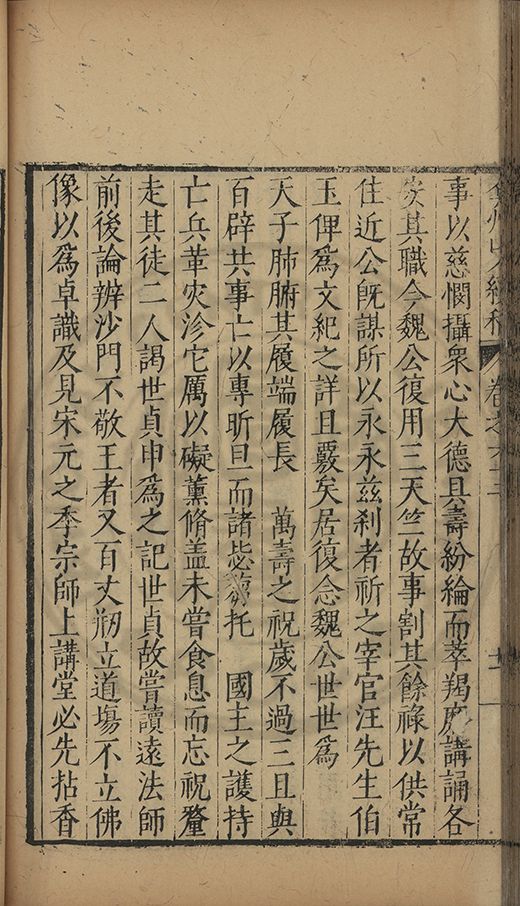 弇州山人續稿 卷之六十二 十一
事以慈憫攝衆心大德具壽紛綸而萃羯磨講誦各
安其職今魏公復用三天竺故事割其餘祿以供常
住近公旣謀所以永永兹刹者祈之宰官汪先生伯
玉俾爲文紀之詳且覈矣居復念魏公世世爲
天子肺腑其履端履長 萬壽之祝歲不過三且與
百辟共事亡以專昕旦而諸毖蒭托 國主之護持
亡兵革灾沴它厲以礙薰脩盖未嘗食息而忘祝釐
走其徒二人謁世貞申爲之記世貞故嘗讀遠法師
前後論辨沙門不敬王者又百丈剏立道塲不立佛
像以爲卓識及見宋元之季宗師上講堂必先拈香